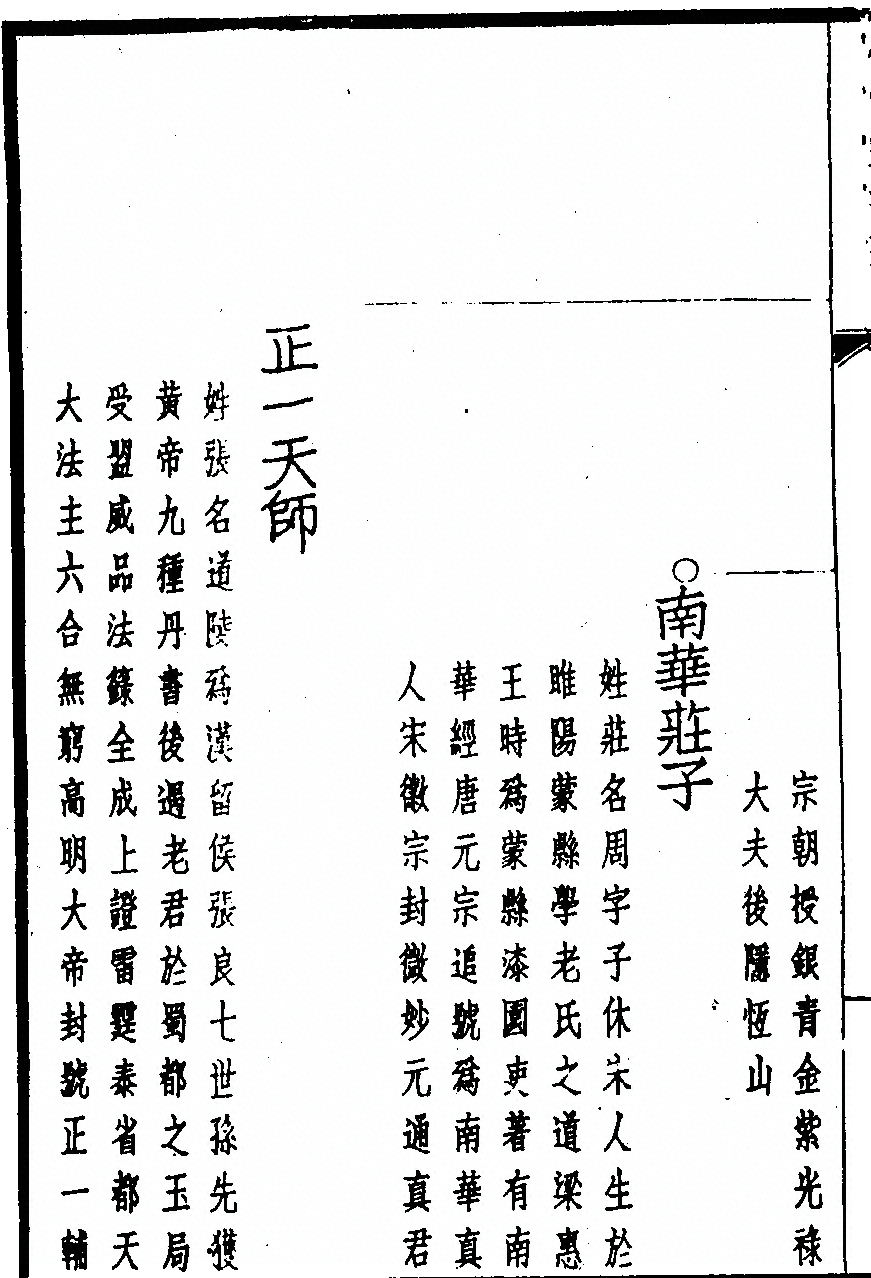 宗朝授銀青金紫光祿
大夫後隱恆山
○南華莊子
姓莊名周字子休宋人生於
睢陽蒙縣學老氏之道梁惠
王時爲蒙縣漆園吏著有南
華經唐元宗追號爲南華真
人宋徽宗封微妙元通真君
正一天師
姓張名道陵爲漢留侯張良七世孫先獲
黃帝九種丹書後遇老君於蜀都之玉局
受盟威品法籙全成上證雷霆泰省都天
大法主六合無窮高明大帝封號正一輔